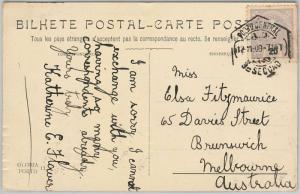 BILHETE POSTAL-CARTE POSTALE
Tous les pays étrangers n'acceptent pas la correspondance au recto.
I am sorry I cannot
exchange with you
having so many
correspondents already.
Yours truly
Katherine E.
Miss
Elsa Fitzmaurice
65 Davies Street
Brunswick
Melbourne
Australia